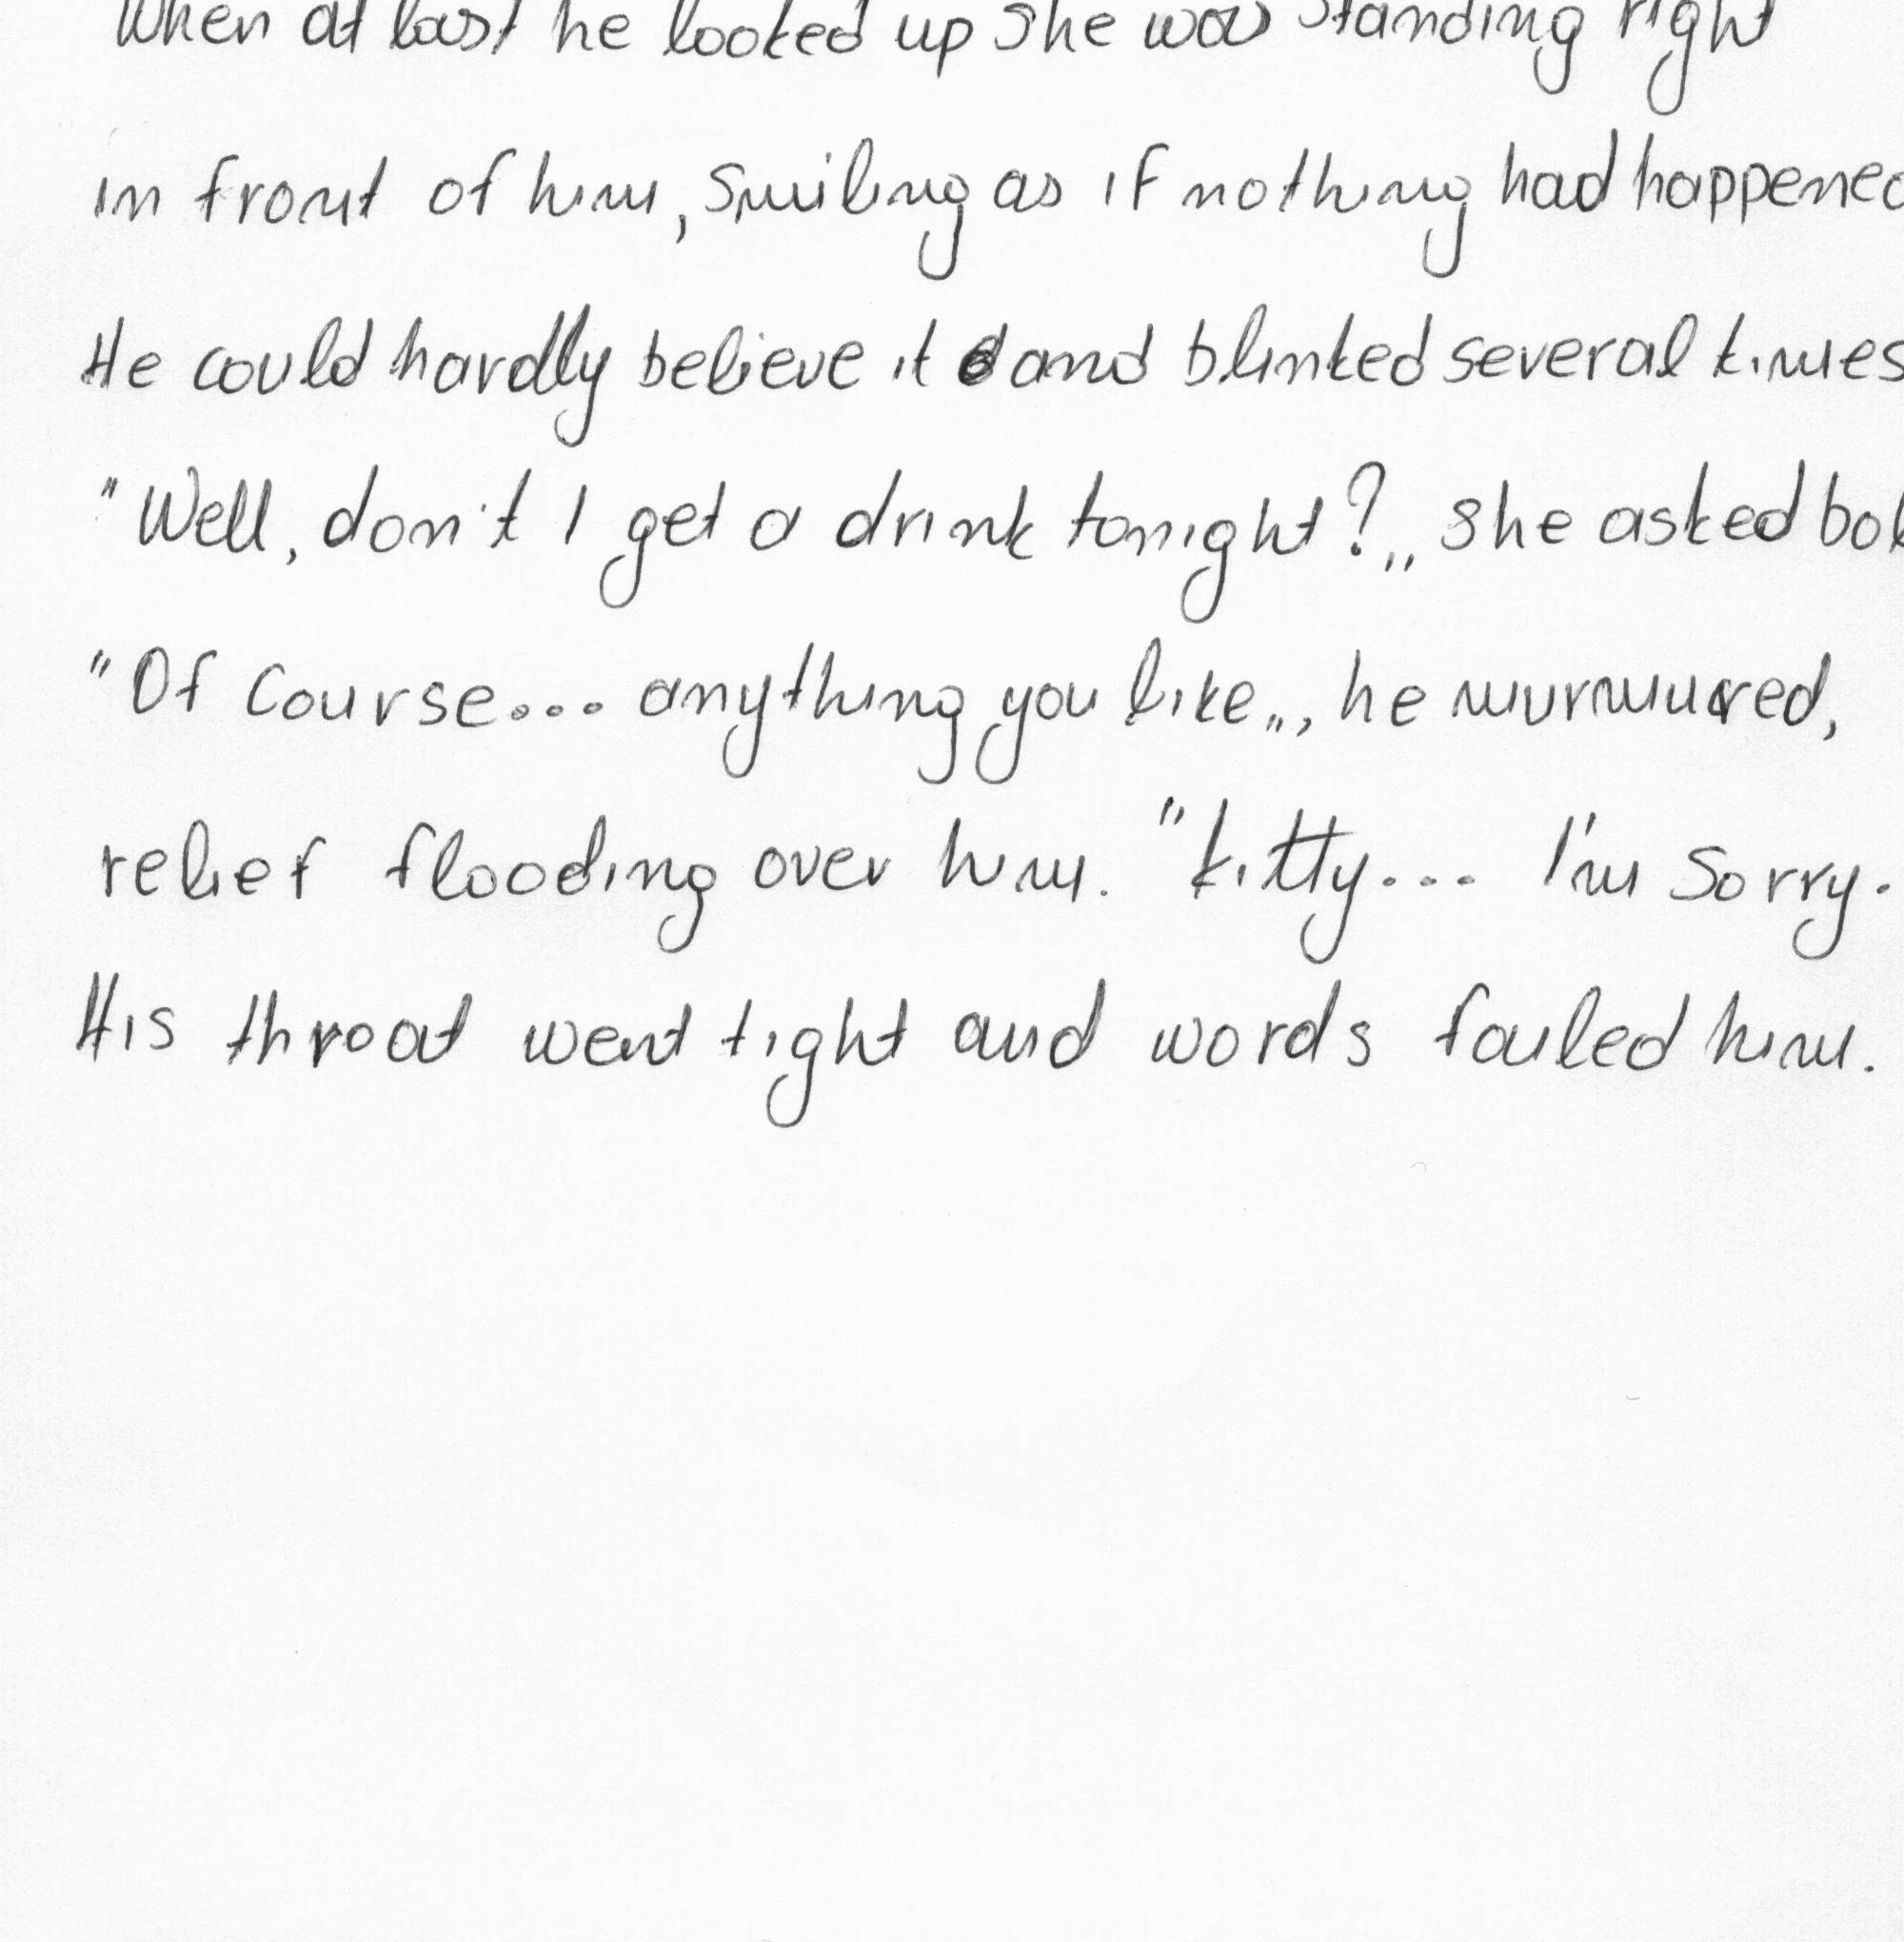 When at last he looked up she was standing right
in front of him, smiling as if nothing had happened
He could hardly believe it and blinked several times
"Well, don't I get a drink tonight?„ she asked
"Of course... anything you like„, he murmured,
relief flooding over him. "Kitty... I'm sorry.
His throat went tight and words failed him.